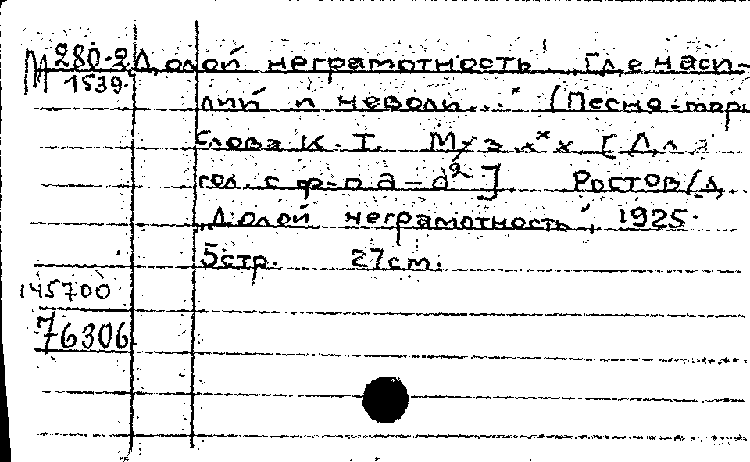 М 280-3 Долой неграмотность! „Где наси-
1539.
лий и неволи..." (Песня-марш
Слова К. Т. Муз. х х х [Для
гол. с ф-п а-а²]. Ростов/Д,
„Долой неграмотность", 1925.
5стр. 27см.
145700
76306